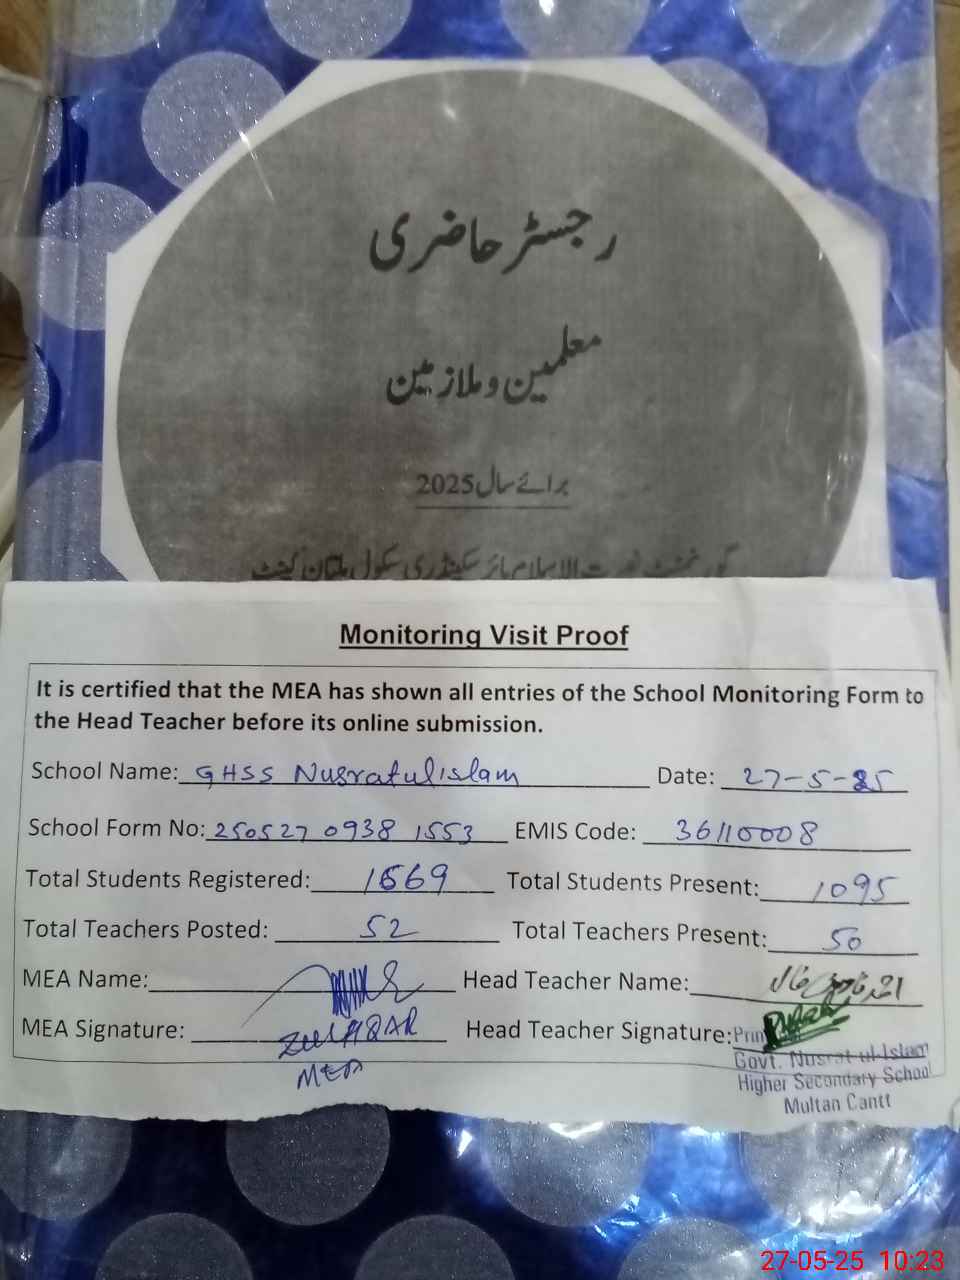 رجسٹر حاضری
معلمین و ملازمین
برائے سال 2025
گورنمنٹ نصرت الاسلام ہائر سیکنڈری سکول ملتان کینٹ
Monitoring Visit Proof
It is certified that the MEA has shown all entries of the School Monitoring Form to
the Head Teacher before its online submission.
School Name: GHSS Nusratulislam Date: 27-5-25
School Form No: 250527 0938 1553 EMIS Code: 36110008
Total Students Registered: 1569 Total Students Present: 1095
Total Teachers Posted: 52 Total Teachers Present: 50
MEA Name: Head Teacher Name:
MEA Signature: ZULFIQAR Head Teacher Signature:
MEA
Govt. Nusrat-ul-Islam
Higher Secondary School
Multan Cantt
27-05-25 10:23